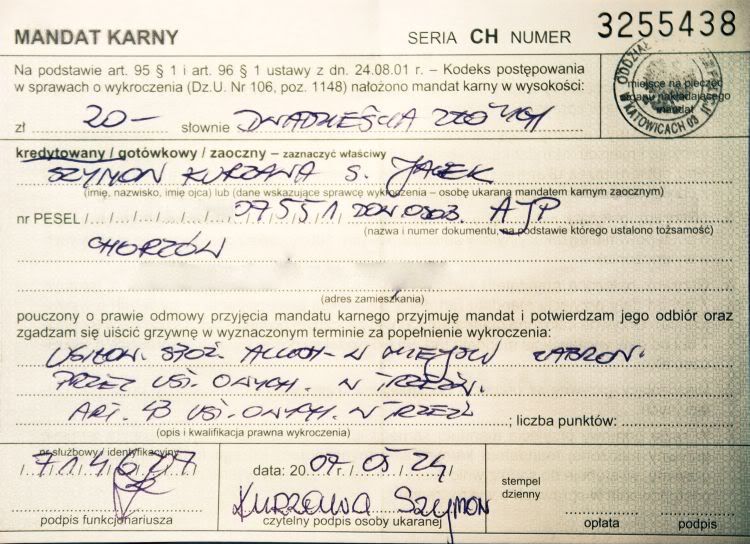 MANDAT KARNY SERIA CH NUMER 3255438
Na podstawie art. 95 § 1 i art. 96 § 1 ustawy z dn. 24.08.01 r. – Kodeks postępowania
w sprawach o wykroczenia (Dz.U. Nr 106, poz. 1148) nałożono mandat karny w wysokości:
miejsce na pieczęć
organu nakładającego
mandat
ODDZIAŁ
W KATOWICACH 09
zł 20- słownie DWADZIEŚCIA ZŁOTYCH
kredytowany / gotówkowy / zaoczny – zaznaczyć właściwy
SZYMON KURZAWA s. JACEK
(imię, nazwisko, imię ojca) lub (dane wskazujące sprawcę wykroczenia – osobę ukaraną mandatem karnym zaocznym)
nr PESEL DOW. OSOB. AJP
(nazwa i numer dokumentu, na podstawie którego ustalono tożsamość)
CHORZÓW
(adres zamieszkania)
pouczony o prawie odmowy przyjęcia mandatu karnego przyjmuję mandat i potwierdzam jego odbiór oraz
zgadzam się uiścić grzywnę w wyznaczonym terminie za popełnienie wykroczenia:
W MIEJSCU ZABRON.
PRZEZ UST. O WYCH. W TRZEŹW.
ART. 43 UST. O WYCH. W TRZEŹ ; liczba punktów:
(opis i kwalifikacja prawna wykroczenia)
nr służbowy / identyfikacyjny
data: 2007 r. 05
KURZAWA SZYMON
stempel
dzienny
podpis funkcjonariusza czytelny podpis osoby ukaranej opłata podpis